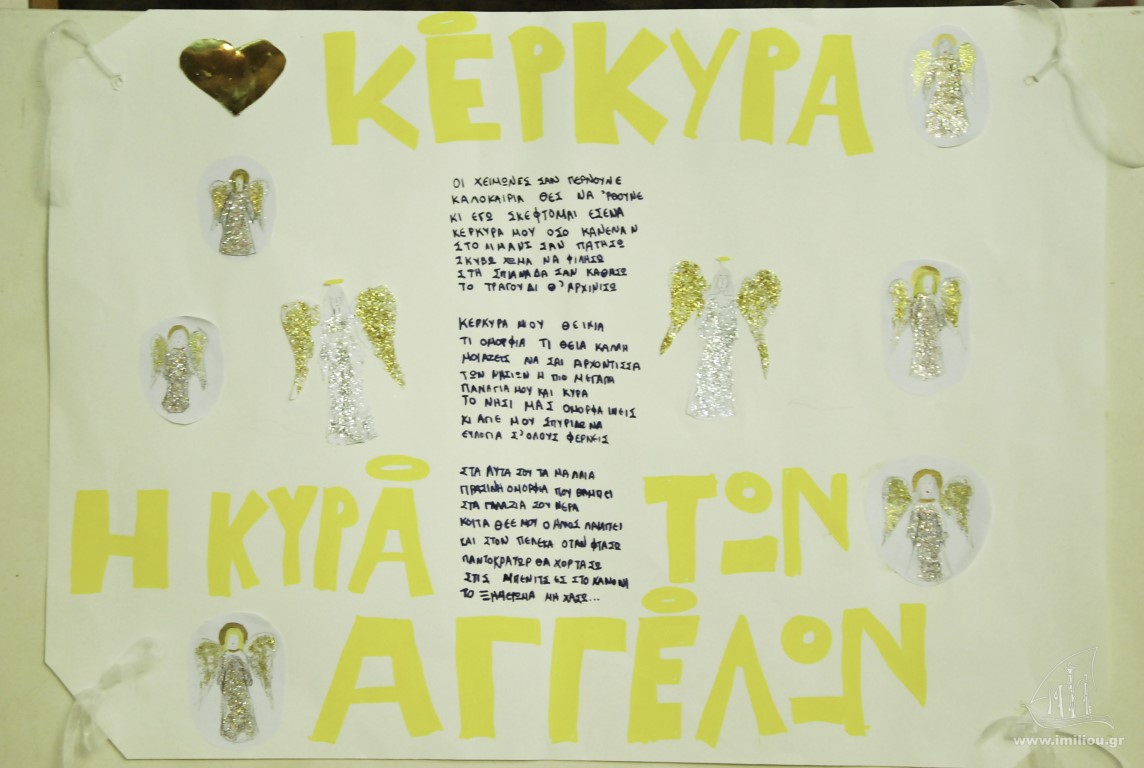 ΚΕΡΚΥΡΑ
ΟΙ ΧΕΙΜΩΝΕΣ ΣΑΝ ΠΕΡΝΟΥΝΕ
ΚΑΛΟΚΑΙΡΙΑ ΘΕΣ ΝΑ 'ΡΘΟΥΝΕ
ΚΙ ΕΓΩ ΣΚΕΦΤΟΜΑΙ ΕΣΕΝΑ
ΚΕΡΚΥΡΑ ΜΟΥ ΟΣΟ ΚΑΝΕΝΑΝ
ΣΤΟ ΛΙΜΑΝΙ ΣΑΝ ΠΑΤΗΣΩ
ΣΚΥΒΩ ΧΩΜΑ ΝΑ ΦΙΛΗΣΩ
ΣΤΗ ΣΠΙΑΝΑΔΑ ΣΑΝ ΚΑΘΙΣΩ
ΤΟ ΤΡΑΓΟΥΔΙ Θ'ΑΡΧΙΝΙΣΩ
ΚΕΡΚΥΡΑ ΜΟΥ ΘΕΙΚΙΑ
ΤΙ ΟΜΟΡΦΙΑ ΤΙ ΘΕΙΑ ΚΑΛΛΗ
ΜΟΙΑΖΕΙΣ ΝΑ ΣΑΙ ΑΡΧΟΝΤΙΣΣΑ
ΤΩΝ ΝΗΣΙΩΝ Η ΠΙΟ ΜΕΓΑΛΗ
ΠΑΝΑΓΙΑ ΜΟΥ ΚΑΙ ΚΥΡΑ
ΤΟ ΝΗΣΙ ΜΑΣ ΟΜΟΡΦΑΙΝΕΙΣ
ΚΙ ΑΓΙΕ ΜΟΥ ΣΠΥΡΙΔΩΝΑ
ΕΥΛΟΓΙΑ Σ'ΟΛΟΥΣ ΦΕΡΝΕΙΣ
ΣΤΑ ΑΥΤΑ ΣΟΥ ΤΑ ΠΑΛΛΙΑ
ΠΡΑΣΙΝΗ ΟΜΟΡΦΙΑ ΠΟΥ ΘΑΜΠΕΙ
ΣΤΑ ΓΑΛΑΖΙΑ ΣΟΥ ΝΕΡΑ
ΚΟΙΤΑ ΘΕΕ ΜΟΥ Ο ΗΛΙΟΣ ΛΑΜΠΕΙ
ΚΑΙ ΣΤΟΝ ΠΕΛΕΚΑ ΟΤΑΝ ΦΤΑΣΩ
ΠΑΝΤΟΚΡΑΤΩΡ ΘΑ ΧΟΡΤΑΣΩ
ΣΤΙΣ ΜΠΕΝΙΤΣΕΣ ΣΤΟ ΚΑΝΟΝΙ
ΤΟ ΞΗΜΕΡΩΜΑ ΜΗ ΧΑΣΩ...
Η ΚΥΡΑ ΤΩΝ
ΑΓΓΕΛΩΝ
www.imiliou.gr